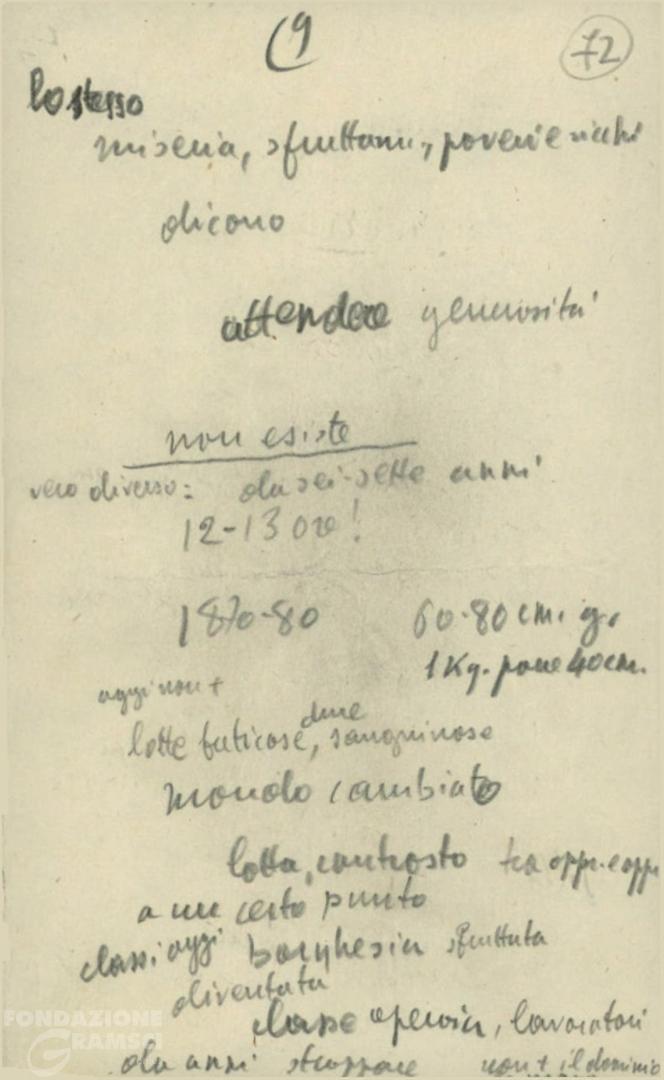 9
72
lo stesso
miseria, sfruttam., poveri e ricchi
dicono
attendere generosità
non esiste
vero diverso: da sei-sette anni
12-13 ore!
1870-80 60-80 cm. g.
1 Kg. pane 40 cm.
oggi non +
dure
lotte faticose, sanguinose
mondo cambiato
lotta, contrasto tra opp. e opp
a un certo punto
classi oggi borghesia sfruttata
diventata
classe operaia, lavoratori
da anni strappare non + il dominio
FONDAZIONE
GRAMSCI